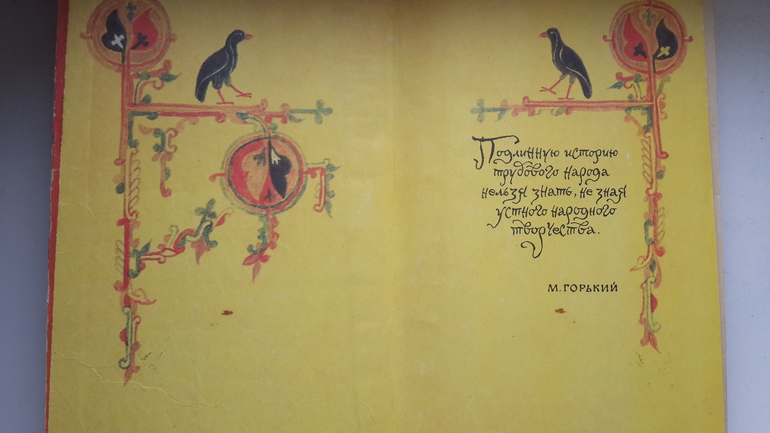 Подлинную историю
трудового народа
нельзя знать, не зная
устного народного
творчества.
М. ГОРЬКИЙ